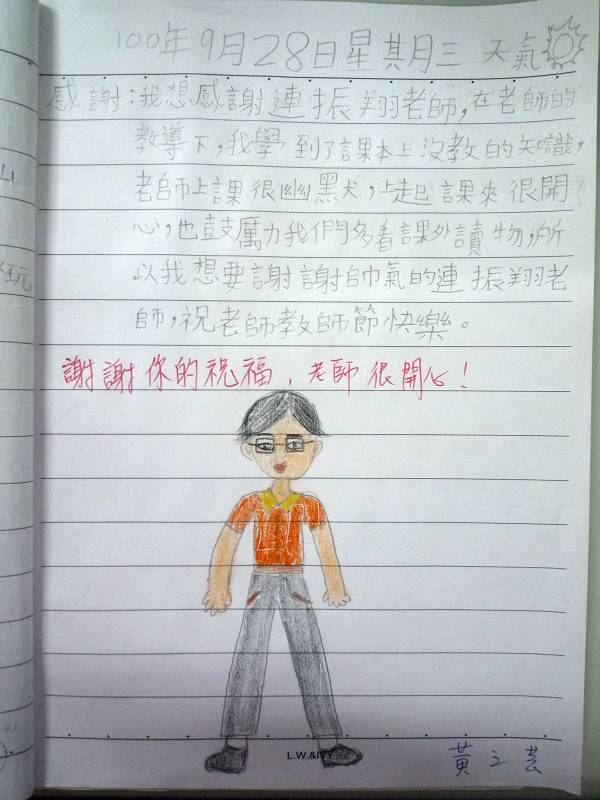 100年9月28日星其月三 天氣
感謝:我想感謝連振翔老師,在老師的
教導下,我學到了課本上沒教的知識,
老師上課很幽默,上起課來很開
心,也鼓厲力我們多看課外讀物,所
以我想要謝謝帥氣的連振翔老
師,祝老師教師節快樂。
謝謝你的祝福,老師很開心!
L.W.&IVY
黃之芸
玩